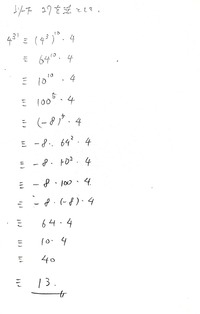 以下 27を法として.
4³¹ ≡ (4³)¹⁰・4
≡ 64¹⁰・4
≡ 10¹⁰・4
≡ 100⁵・4
≡ (-8)⁵・4
≡ -8・64²・4
≡ -8・10²・4
≡ -8・100・4
≡ -8・(-8)・4
≡ 64・4
≡ 10・4
≡ 40
≡ 13.